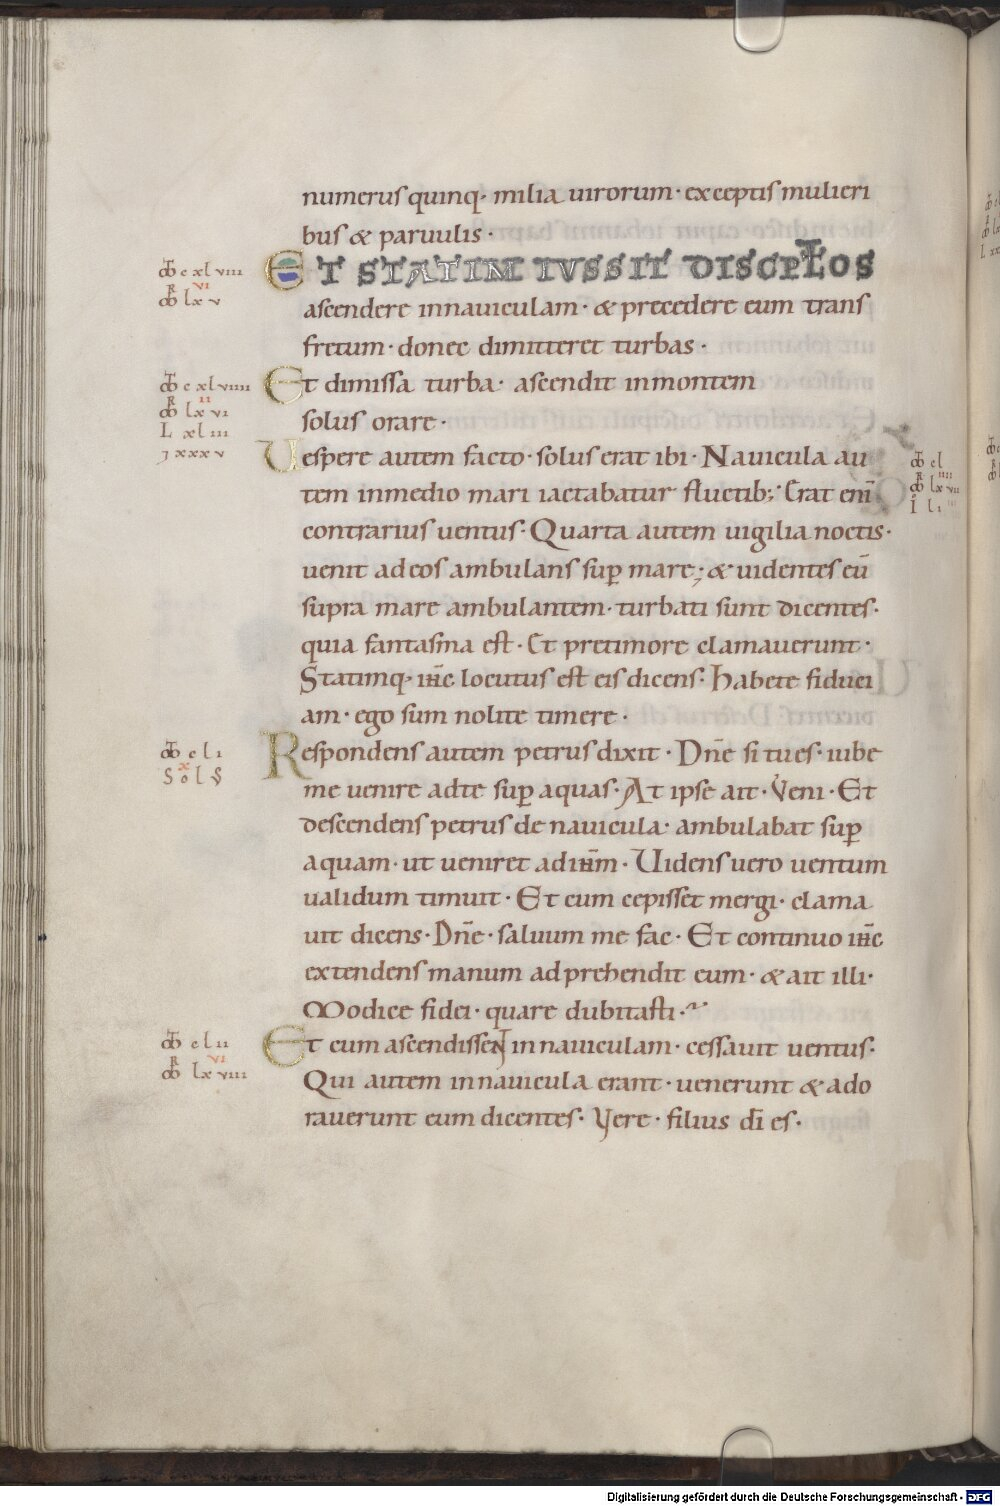 numerus quinq; milia uirorum · exceptis mulieri
bus & paruulis ·
ET STATIM IVSSIT DISCPLOS
ascendere innauiculam · & precedere eum trans
fretum · donec dimitteret turbas ·
Et dimissa turba · ascendit inmontem
solus orare ·
Uespere autem facto · solus erat ibi · Nauicula au
tem inmedio mari iactabatur fluctib; · Erat eni̅
contrarius uentus · Quarta autem uigilia noctis ·
uenit ad eos ambulans sup̅ mare ; & uidentes eu̅
supra mare ambulantem · turbati sunt dicentes ·
quia fantasma est · Et pretimore clamauerunt ·
Statimq; ih̅c locutus est eis dicens · Habete fiduci
am · ego sum nolite timere ·
Respondens autem petrus dixit · Dn̅e si tu es · iube
me uenire adte sup̅ aquas · At ipse ait · Veni · Et
descendens petrus de nauicula · ambulabat sup̅
aquam · ut ueniret ad ih̅m · Uidens uero uentum
ualidum timuit · Et cum cepisset mergi · clama
uit dicens · Dn̅e · saluum me fac · Et continuo ih̅c
extendens manum adprehendit eum · & ait illi ·
Modice fidei · quare dubitasti ·
Et cum ascendissent in nauiculam · cessauit uentus ·
Qui autem in nauicula erant · uenerunt & ado
rauerunt eum dicentes · Vere · filius di̅ es ·
c xl viii
vi
lx v
c xl viiii
ii
lx vi
L xl iii
xxx v
c l
iiii
lx vii
l i
c l i
x
c l ii
vi
lx viii
Digitalisierung gefördert durch die Deutsche Forschungsgemeinschaft - DFG